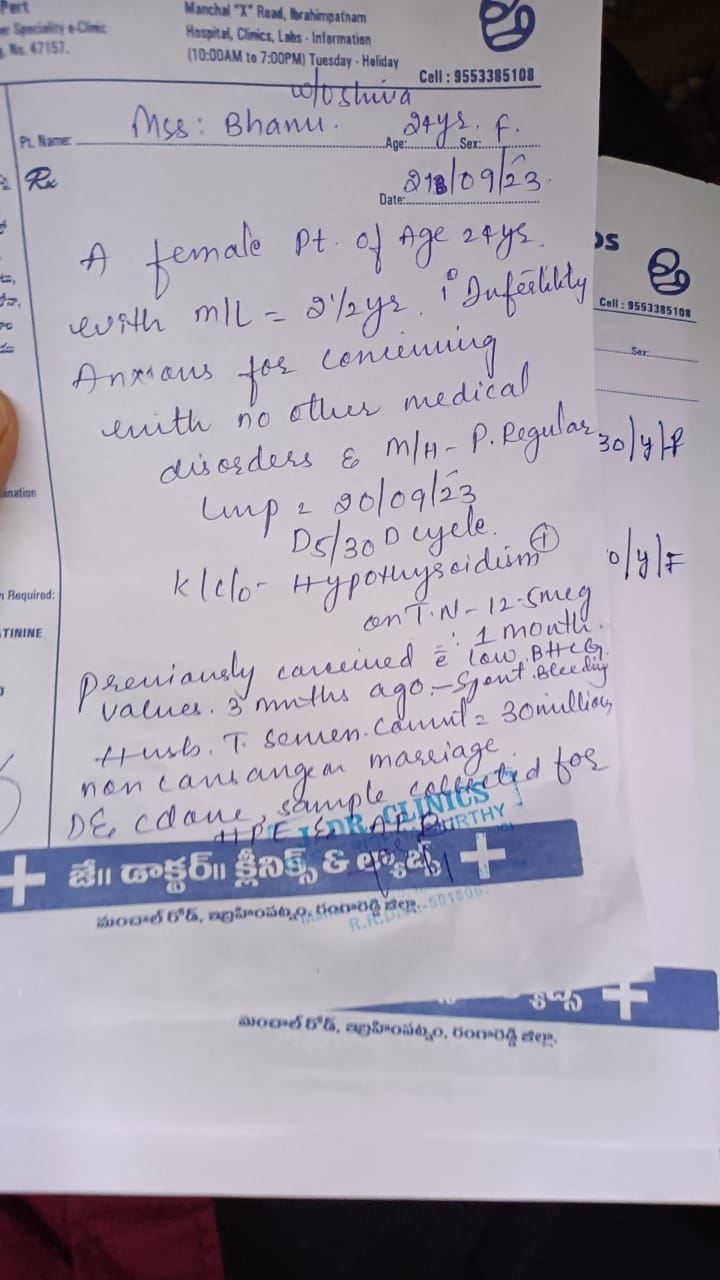 Pert
er Speciality e-Clinic
g. No. 47157.
Manchal "X" Road, Ibrahimpatnam
Hospital, Clinics, Labs - Information
(10:00AM to 7:00PM) Tuesday - Holiday
Cell : 9553385108
w/o Shiva
Pt. Name: Mss: Bhanu. Age: 24ys. Sex: F.
Rx
Date: 213/09/23.
A female Pt. of Age 24ys.
with m/L = 2 1/2 ys. 1° Infertility
Anxious for concieving
with no other medical
disorders & M/H - P. Regular
Lmp = 20/09/23
D5/30 D cycle.
K/c/o - Hypothyroidism +
on T.N - 12.5mcg
: 1 month.
Previously concieved c̄ low BHCG
values. 3 mnths ago - Spont. Bleeding
Husb. T. semen. Count = 30 million,
non consangeon marriage.
DE, C done, sample collected for
HPE & AFB
DR. CLINICS
URTHY
R.R.Dist.-501506.
ination
n Required:
TININE
జే॥ డాక్టర్॥ క్లినిక్స్ & ల్యాబ్స్
మంచాల్ రోడ్, ఇబ్రహింపట్నం, రంగారెడ్డి జిల్లా.
OS
Cell : 9553385108
Sex:
30/y/F
0/y/F
మంచాల్ రోడ్, ఇబ్రహింపట్నం, రంగారెడ్డి జిల్లా.